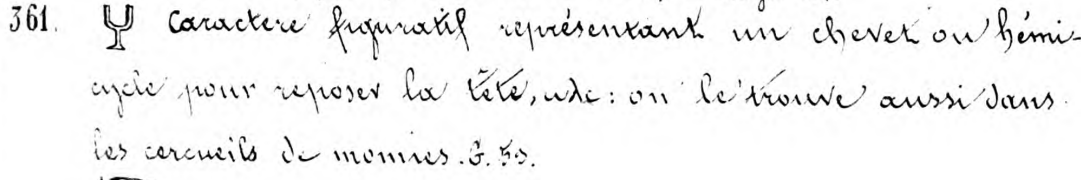 361. caractere figuratif représentant un chevet ou hémi-
cycle pour reposer la tête, : on le trouve aussi dans
les cercueils de momies. G. 53.